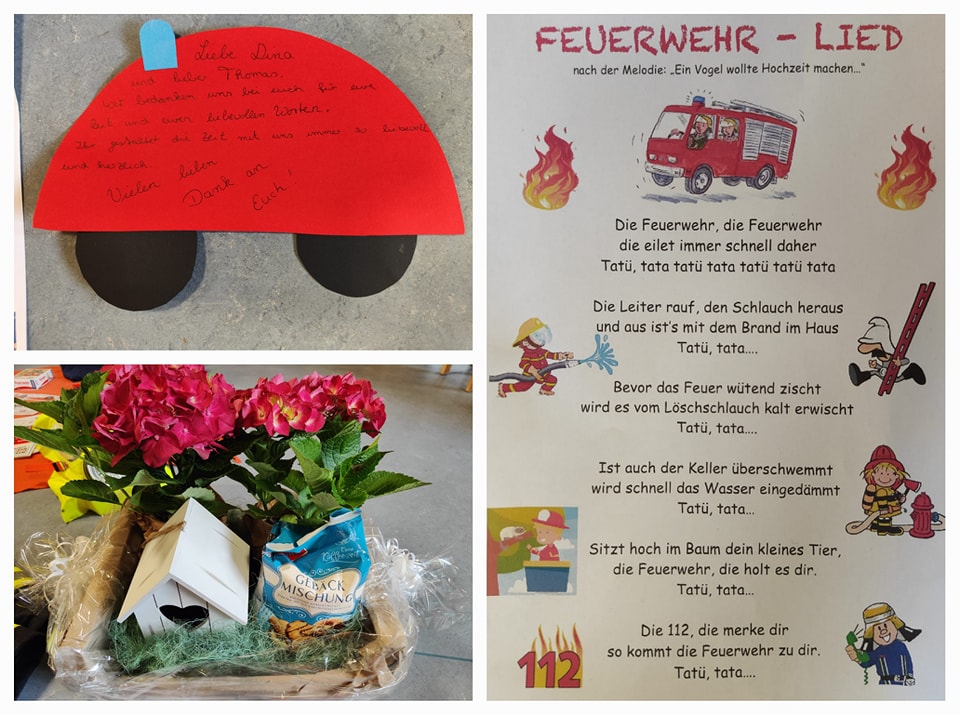 Liebe Dina
und lieber Thomas,
wir bedanken uns bei euch für eure
Zeit und euren liebevollen Worten.
Ihr gestaltet die Zeit mit uns immer so liebevoll
und herzlich.
Vielen lieben
Dank an
Euch!
GEBÄCK
MISCHUNG
FEUERWEHR - LIED
nach der Melodie: „Ein Vogel wollte Hochzeit machen..."
Die Feuerwehr, die Feuerwehr
die eilet immer schnell daher
Tatü, tata tatü tata tatü tatü tata
Die Leiter rauf, den Schlauch heraus
und aus ist's mit dem Brand im Haus
Tatü, tata....
Bevor das Feuer wütend zischt
wird es vom Löschschlauch kalt erwischt
Tatü, tata....
Ist auch der Keller überschwemmt
wird schnell das Wasser eingedämmt
Tatü, tata...
Sitzt hoch im Baum dein kleines Tier,
die Feuerwehr, die holt es dir.
Tatü, tata...
Die 112, die merke dir
so kommt die Feuerwehr zu dir.
Tatü, tata....
112